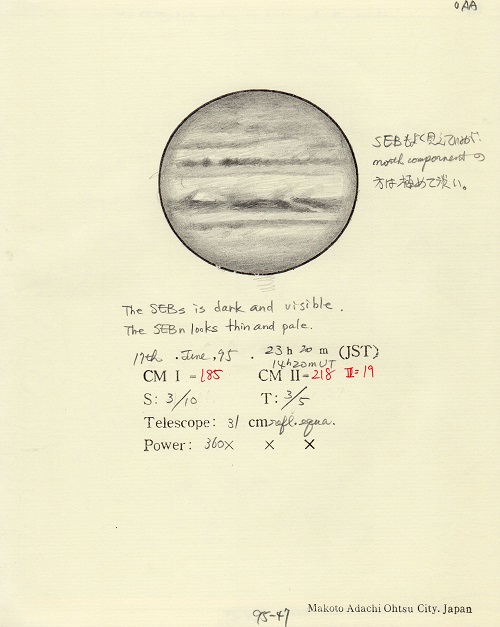 OAA
SEBもよく見えているが、
north component の
方は極めて淡い。
The SEBs is dark and visible.
The SEBn looks thin and pale.
17th . June, 95 . 23 h 20 m (JST)
14h20m UT
CM I = 185 CM II = 218 III = 19
S: 3/10 T: 3/5
Telescope: 31 cm refl. equa.
Power: 360× × ×
95-47 Makoto Adachi Ohtsu City. Japan